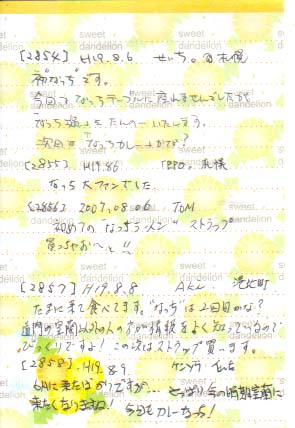 sweet dandelion
[2854] H19.8.6 せいち。@札幌
初"なっち"です。
今回もなっちテーブルに座れませんでしたが
なっち盛りをたんのーいたします。
次回はなっちカレーかな?
[2855] H19.8.6 札幌
なっち大ファンでした
[2856] 2007.08.06 TOM
初めてのなっちラーメン ストラップ
買っちゃおーっと!!
[2857] H19.8.8 Aki.
たまに来て食べてます。"なっち"は2回目かな?
道内の室蘭以外の人の方が情報をよく知っているので
びっくりですよ! この次はストラップ買います。
[2858] H19.8.9.
6月に来たばかりですが… やっぱり今の時期室蘭に
来たくなりますね! 今日もカレーだっ!